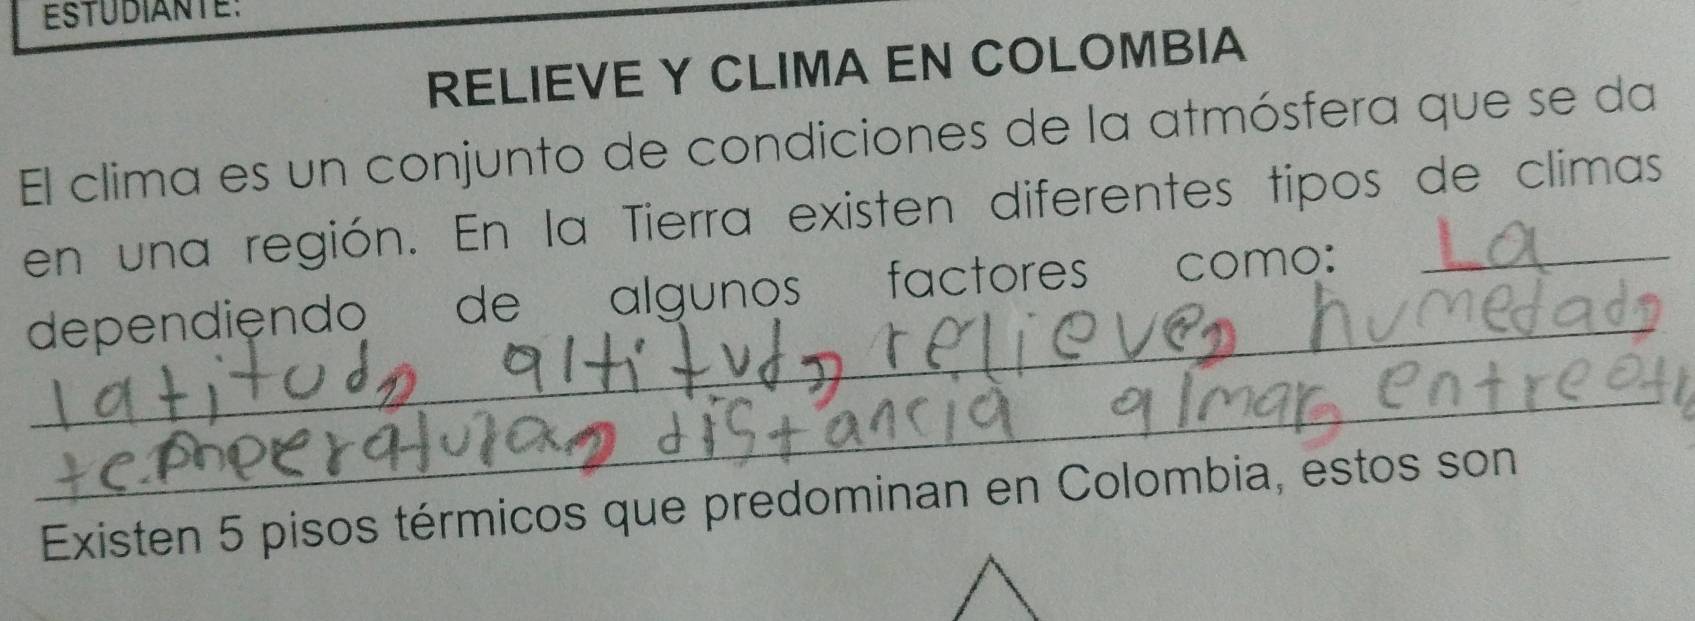 ESTUDIANTE:
RELIEVE Y CLIMA EN COLOMBIA
El clima es un conjunto de condiciones de la atmósfera que se da
en una región. En la Tierra existen diferentes tipos de climas
dependiendo de algunos factores como: La
latitud, altitud, relieve, humedad,
distancia almar, entre
Existen 5 pisos térmicos que predominan en Colombia, estos son